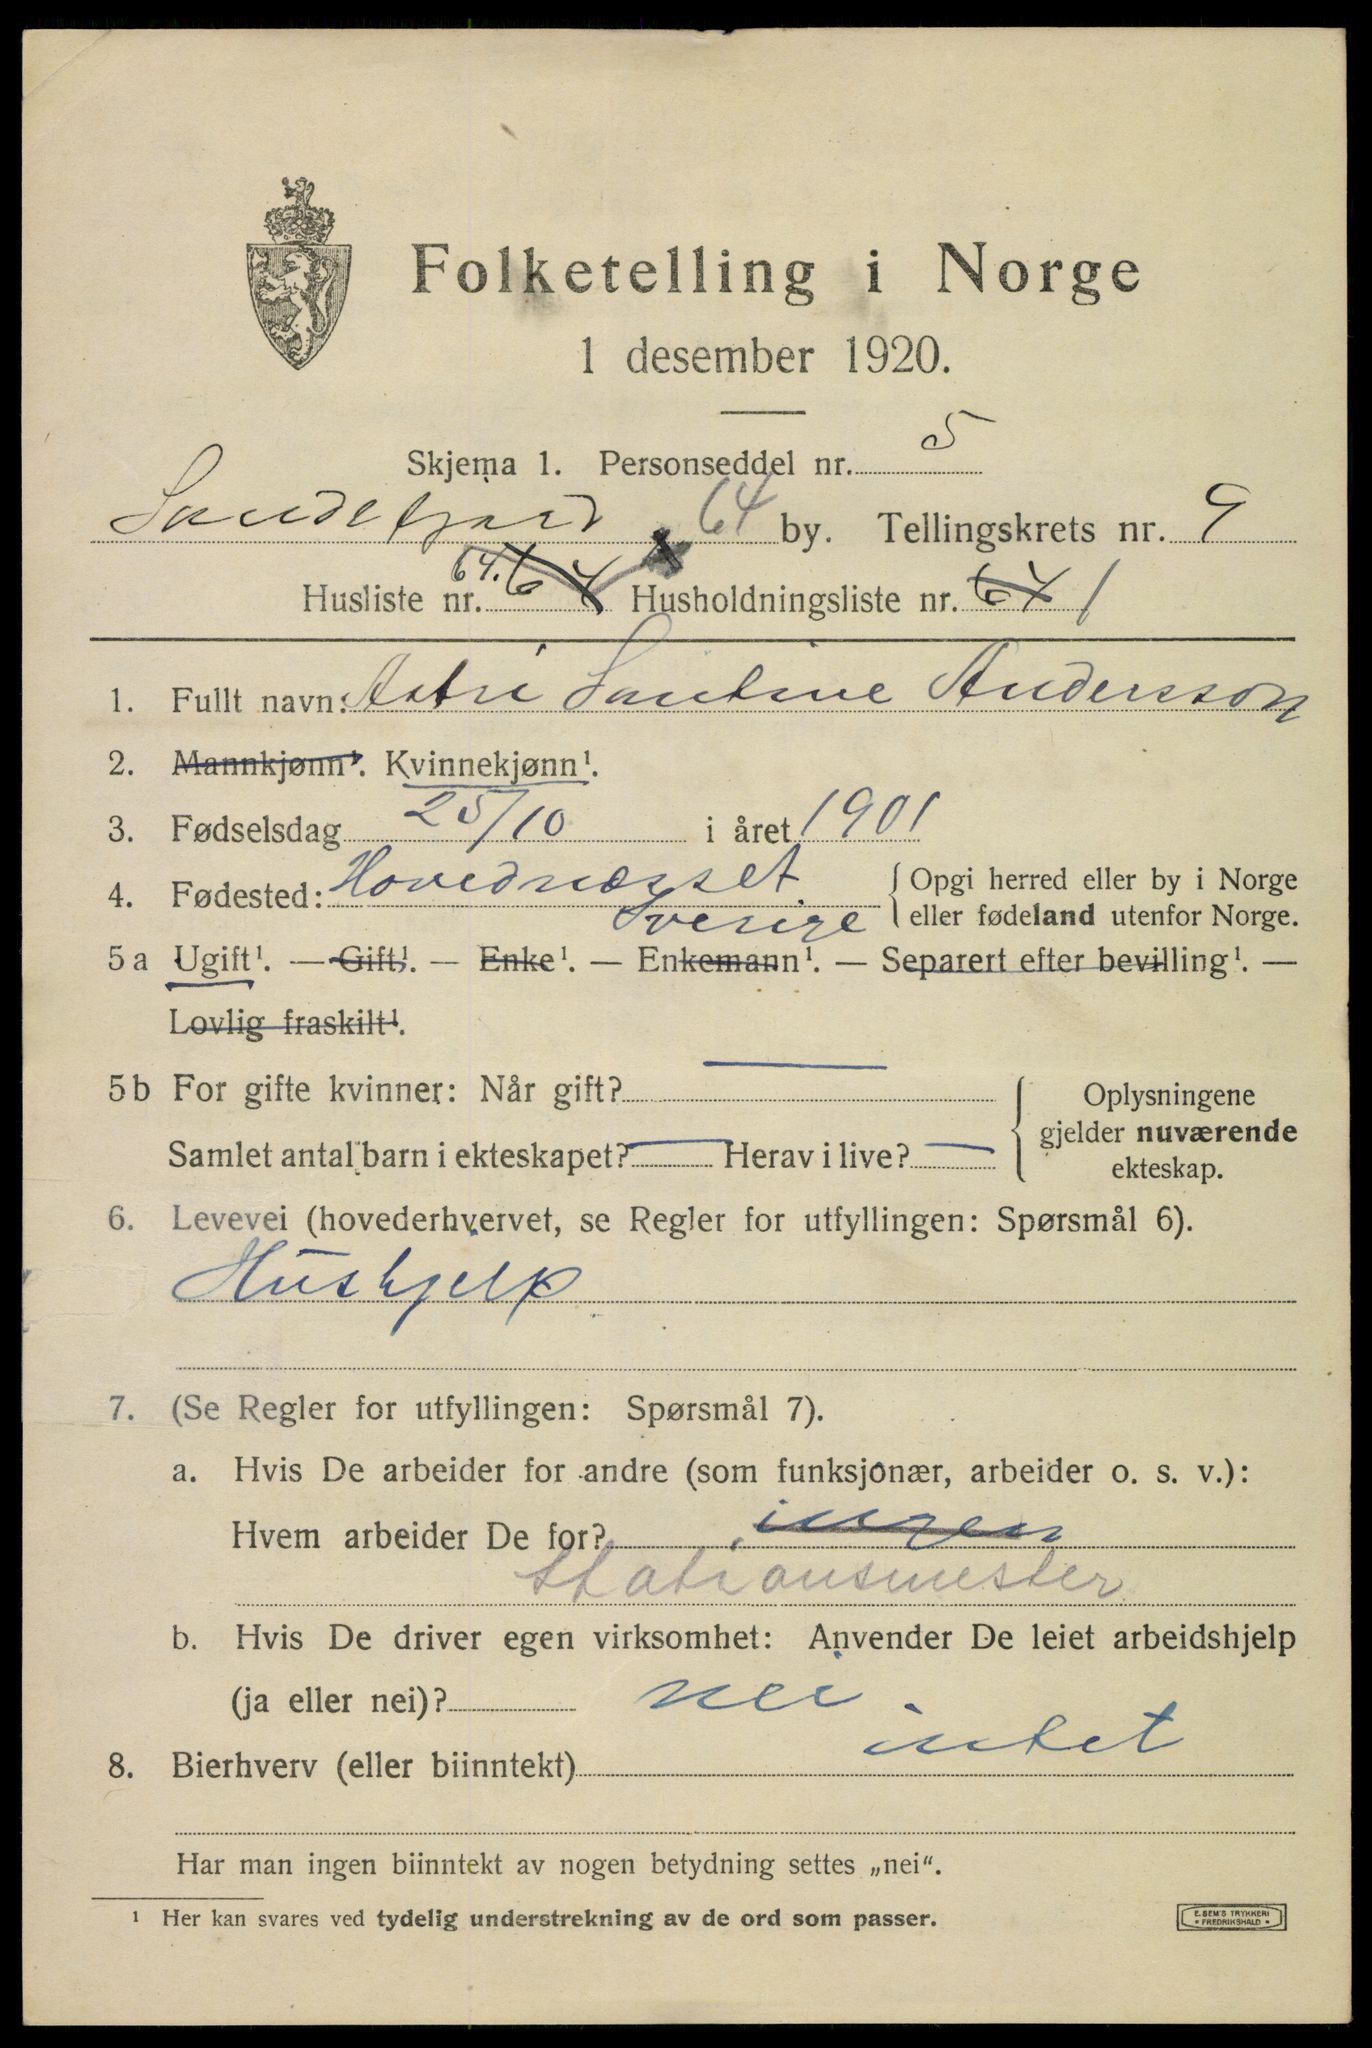 Folketelling i Norge
1 desember 1920.
Skjema 1. Personseddel nr. 5
Sandefjord 64 by. Tellingskrets nr. 9
Husliste nr. 64. 64 Husholdningsliste nr. 64 1
1. Fullt navn: Astri Santine Andersson
2. Mannkjønn¹. Kvinnekjønn¹.
3. Fødselsdag 25/10 i året 1901
4. Fødested: Hovednæsset { Opgi herred eller by i Norge
Sverige eller fødeland utenfor Norge.
5 a Ugift¹. — Gift¹. — Enke¹. — Enkemann¹. — Separert efter bevilling¹. —
Lovlig fraskilt¹.
5 b For gifte kvinner: Når gift? — { Oplysningene
gjelder nuværende
Samlet antal barn i ekteskapet? — Herav i live? —
ekteskap.
6. Levevei (hovederhvervet, se Regler for utfyllingen: Spørsmål 6).
Hushjelp
7. (Se Regler for utfyllingen: Spørsmål 7).
a. Hvis De arbeider for andre (som funksjonær, arbeider o. s. v.):
Hvem arbeider De for? ingen
Stationsmester
b. Hvis De driver egen virksomhet: Anvender De leiet arbeidshjelp
(ja eller nei)? nei.
8. Bierhverv (eller biinntekt) intet
Har man ingen biinntekt av nogen betydning settes „nei“.
¹ Her kan svares ved tydelig understrekning av de ord som passer.
E. SEM'S TRYKKERI
• FREDRIKSHALD •